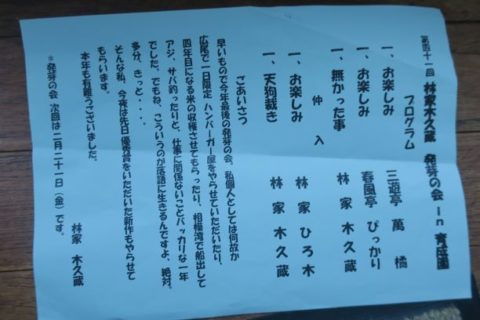 第四十一回 林家木久蔵 発芽の会 in 育成園
プログラム
一、お楽しみ 三遊亭 萬橘
一、お楽しみ 春風亭 ぴっかり
一、無かった事 林家 木久蔵
仲入
一、お楽しみ 林家 ひろ木
一、天狗裁き 林家 木久蔵
ごあいさつ
早いもので今年最後の発芽の会、私個人としては何故か
広尾で一日限定ハンバーガー屋をやらせていただいたり、
四年目になる米の収穫させてもらったり、相模湾で船出して
アジ、サバ釣ったりと、仕事に関係ないことバッカリな一年
でした。でもね、こういうのが落語に生きるんですよ、絶対、
多分、きっと・・・・
そんな私、今夜は先日優秀賞をいただいた新作もやらせて
もらいます。
本年も有難うございました。
林家 木久蔵
※発芽の会 次回は二月二十一日(金)です。